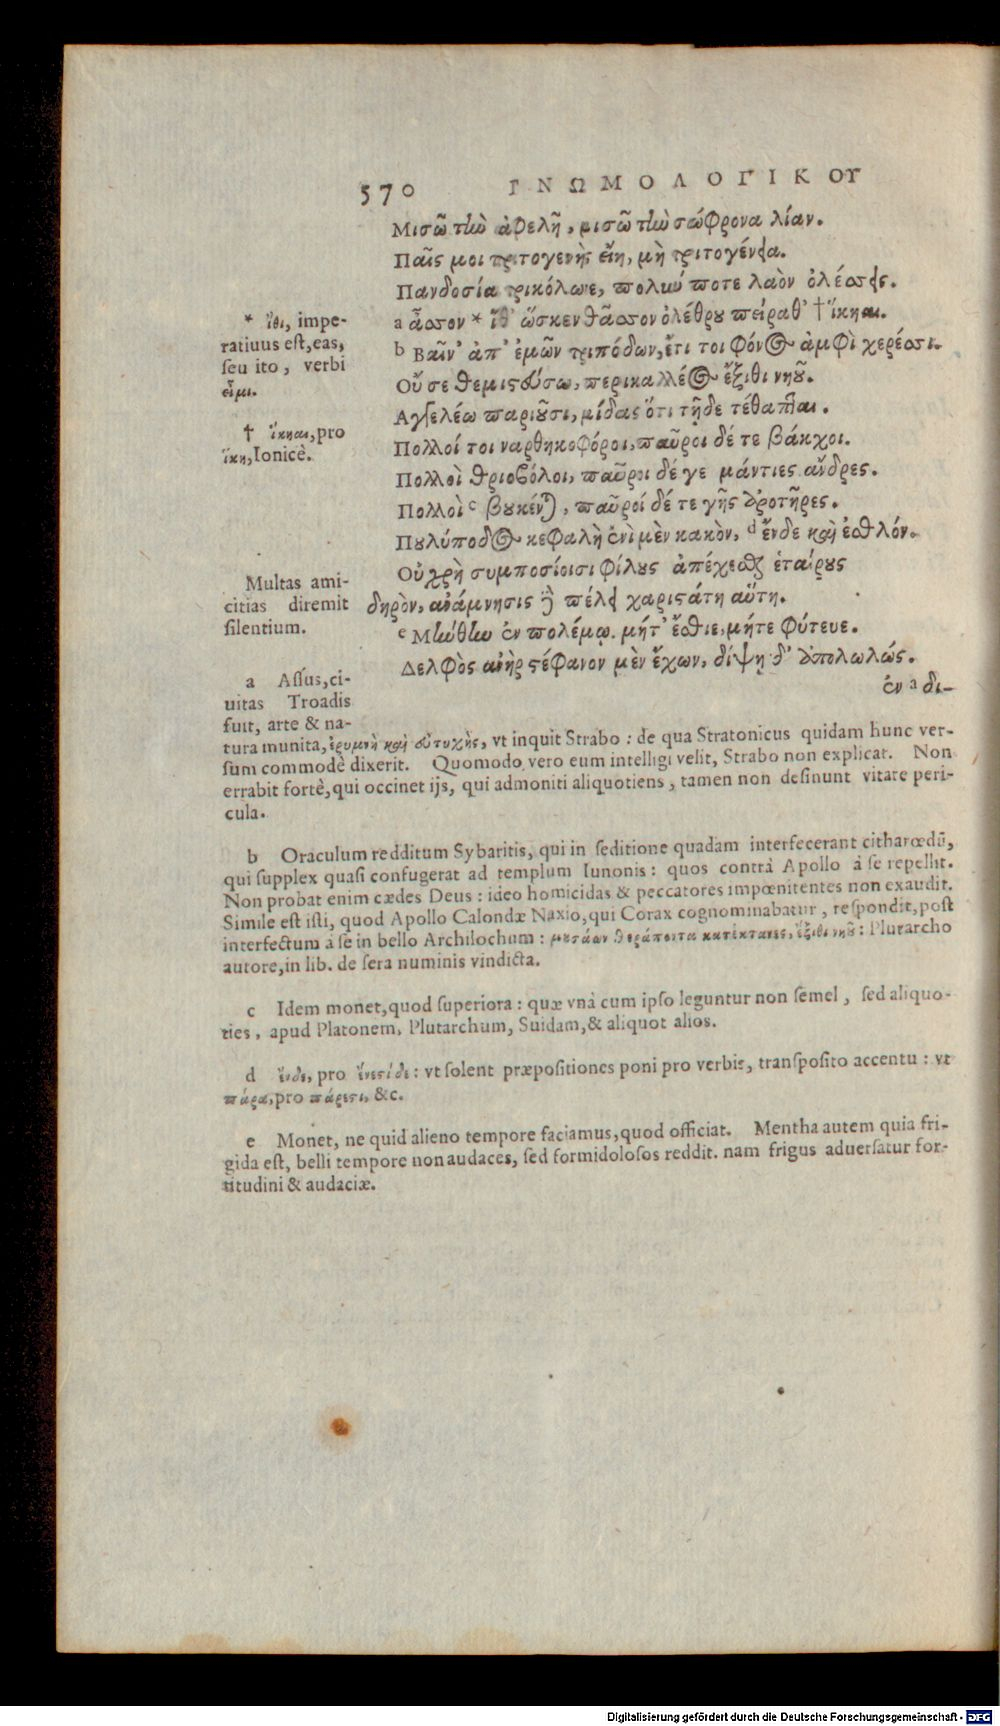 570 ΓΝΩΜΟΛΟΓΙΚΟΥ
Μισῶ τὴν ἀφελῆ, μισῶ τὴν σώφρονα λίαν.
Παῖς μοι τριτογενὴς εἴη, μὴ τριτογένεια.
Πανδοσία τρικόλωνε, πολιώ ποτε λαὸν ὀλέσσεις.
a ἆσσον * ἴθ' ὥς κεν θᾶσσον ὀλέθρου πείραθ' † ἵκηαι.
b Βαῖν' ἀπ' ἐμῶν τριπόδων, ἔτι τοι φόνος ἀμφὶ χερέσσι.
Οὔ σε θεμιστεύσω, περικαλλέος ἔξιθι νηοῦ.
Ἀγγελέω παριοῦσι, μίδας ὅτι τῇδε τέθαπται.
Πολλοί τοι ναρθηκοφόροι, παῦροι δέ τε βάκχοι.
Πολλοὶ θριοβόλοι, παῦροι δέ γε μάντιες ἄνδρες.
Πολλοὶ c βουκένται, παῦροί δέ τε γῆς ἀροτῆρες.
Πουλύποδος κεφαλῇ ἐνὶ μὲν κακὸν, d ἔνδε καὶ ἐσθλόν.
Οὐ χρὴ συμποσίοισι φίλους ἀπέχεσθαι ἑταίρους
δηρὸν, ἀνάμνησις γὰρ πέλει χαριστάτη αὕτη.
e Μίνθην ἐν πολέμῳ μήτ' ἔσθιε, μήτε φύτευε.
Δελφὸς ἀνὴρ στέφανον μὲν ἔχων, δίψῃ δ' ἀπολωλώς.
ἐν a δι-
* ἴθι, impe-
ratiuus est, eas,
seu ito, verbi
εἶμι.
† ἵκηαι, pro
ἵκῃ, Ionicè.
Multas ami-
citias diremit
silentium.
a Assus, ci-
uitas Troadis
fuit, arte & na-
tura munita, ἐρυμνὴ καὶ εὐτυχὴς, vt inquit Strabo: de qua Stratonicus quidam hunc ver-
sum commodè dixerit. Quomodo vero eum intelligi velit, Strabo non explicat. Non
errabit fortè, qui occinet ijs, qui admoniti aliquotiens, tamen non desinunt vitare peri-
cula.
b Oraculum redditum Sybaritis, qui in seditione quadam interfecerant citharœdū,
qui supplex quasi confugerat ad templum Iunonis: quos contrà Apollo à se repellit.
Non probat enim cædes Deus: ideo homicidas & peccatores impœnitentes non exaudit.
Simile est isti, quod Apollo Calondæ Naxio, qui Corax cognominabatur, respondit, post
interfectum à se in bello Archilochum: μουσάων θεράποντα κατέκτανες, ἔξιθι νηοῦ: Plutarcho
autore, in lib. de sera numinis vindicta.
c Idem monet, quod superiora: quæ vnà cum ipso leguntur non semel, sed aliquo-
ties, apud Platonem, Plutarchum, Suidam, & aliquot alios.
d ἔνδε, pro ἔνεστὶ δὲ: vt solent præpositiones poni pro verbis, transposito accentu: vt
πάρα, pro πάρεστι, &c.
e Monet, ne quid alieno tempore faciamus, quod officiat. Mentha autem quia fri-
gida est, belli tempore non audaces, sed formidolosos reddit. nam frigus aduersatur for-
titudini & audaciæ.
Digitalisierung gefördert durch die Deutsche Forschungsgemeinschaft - DFG